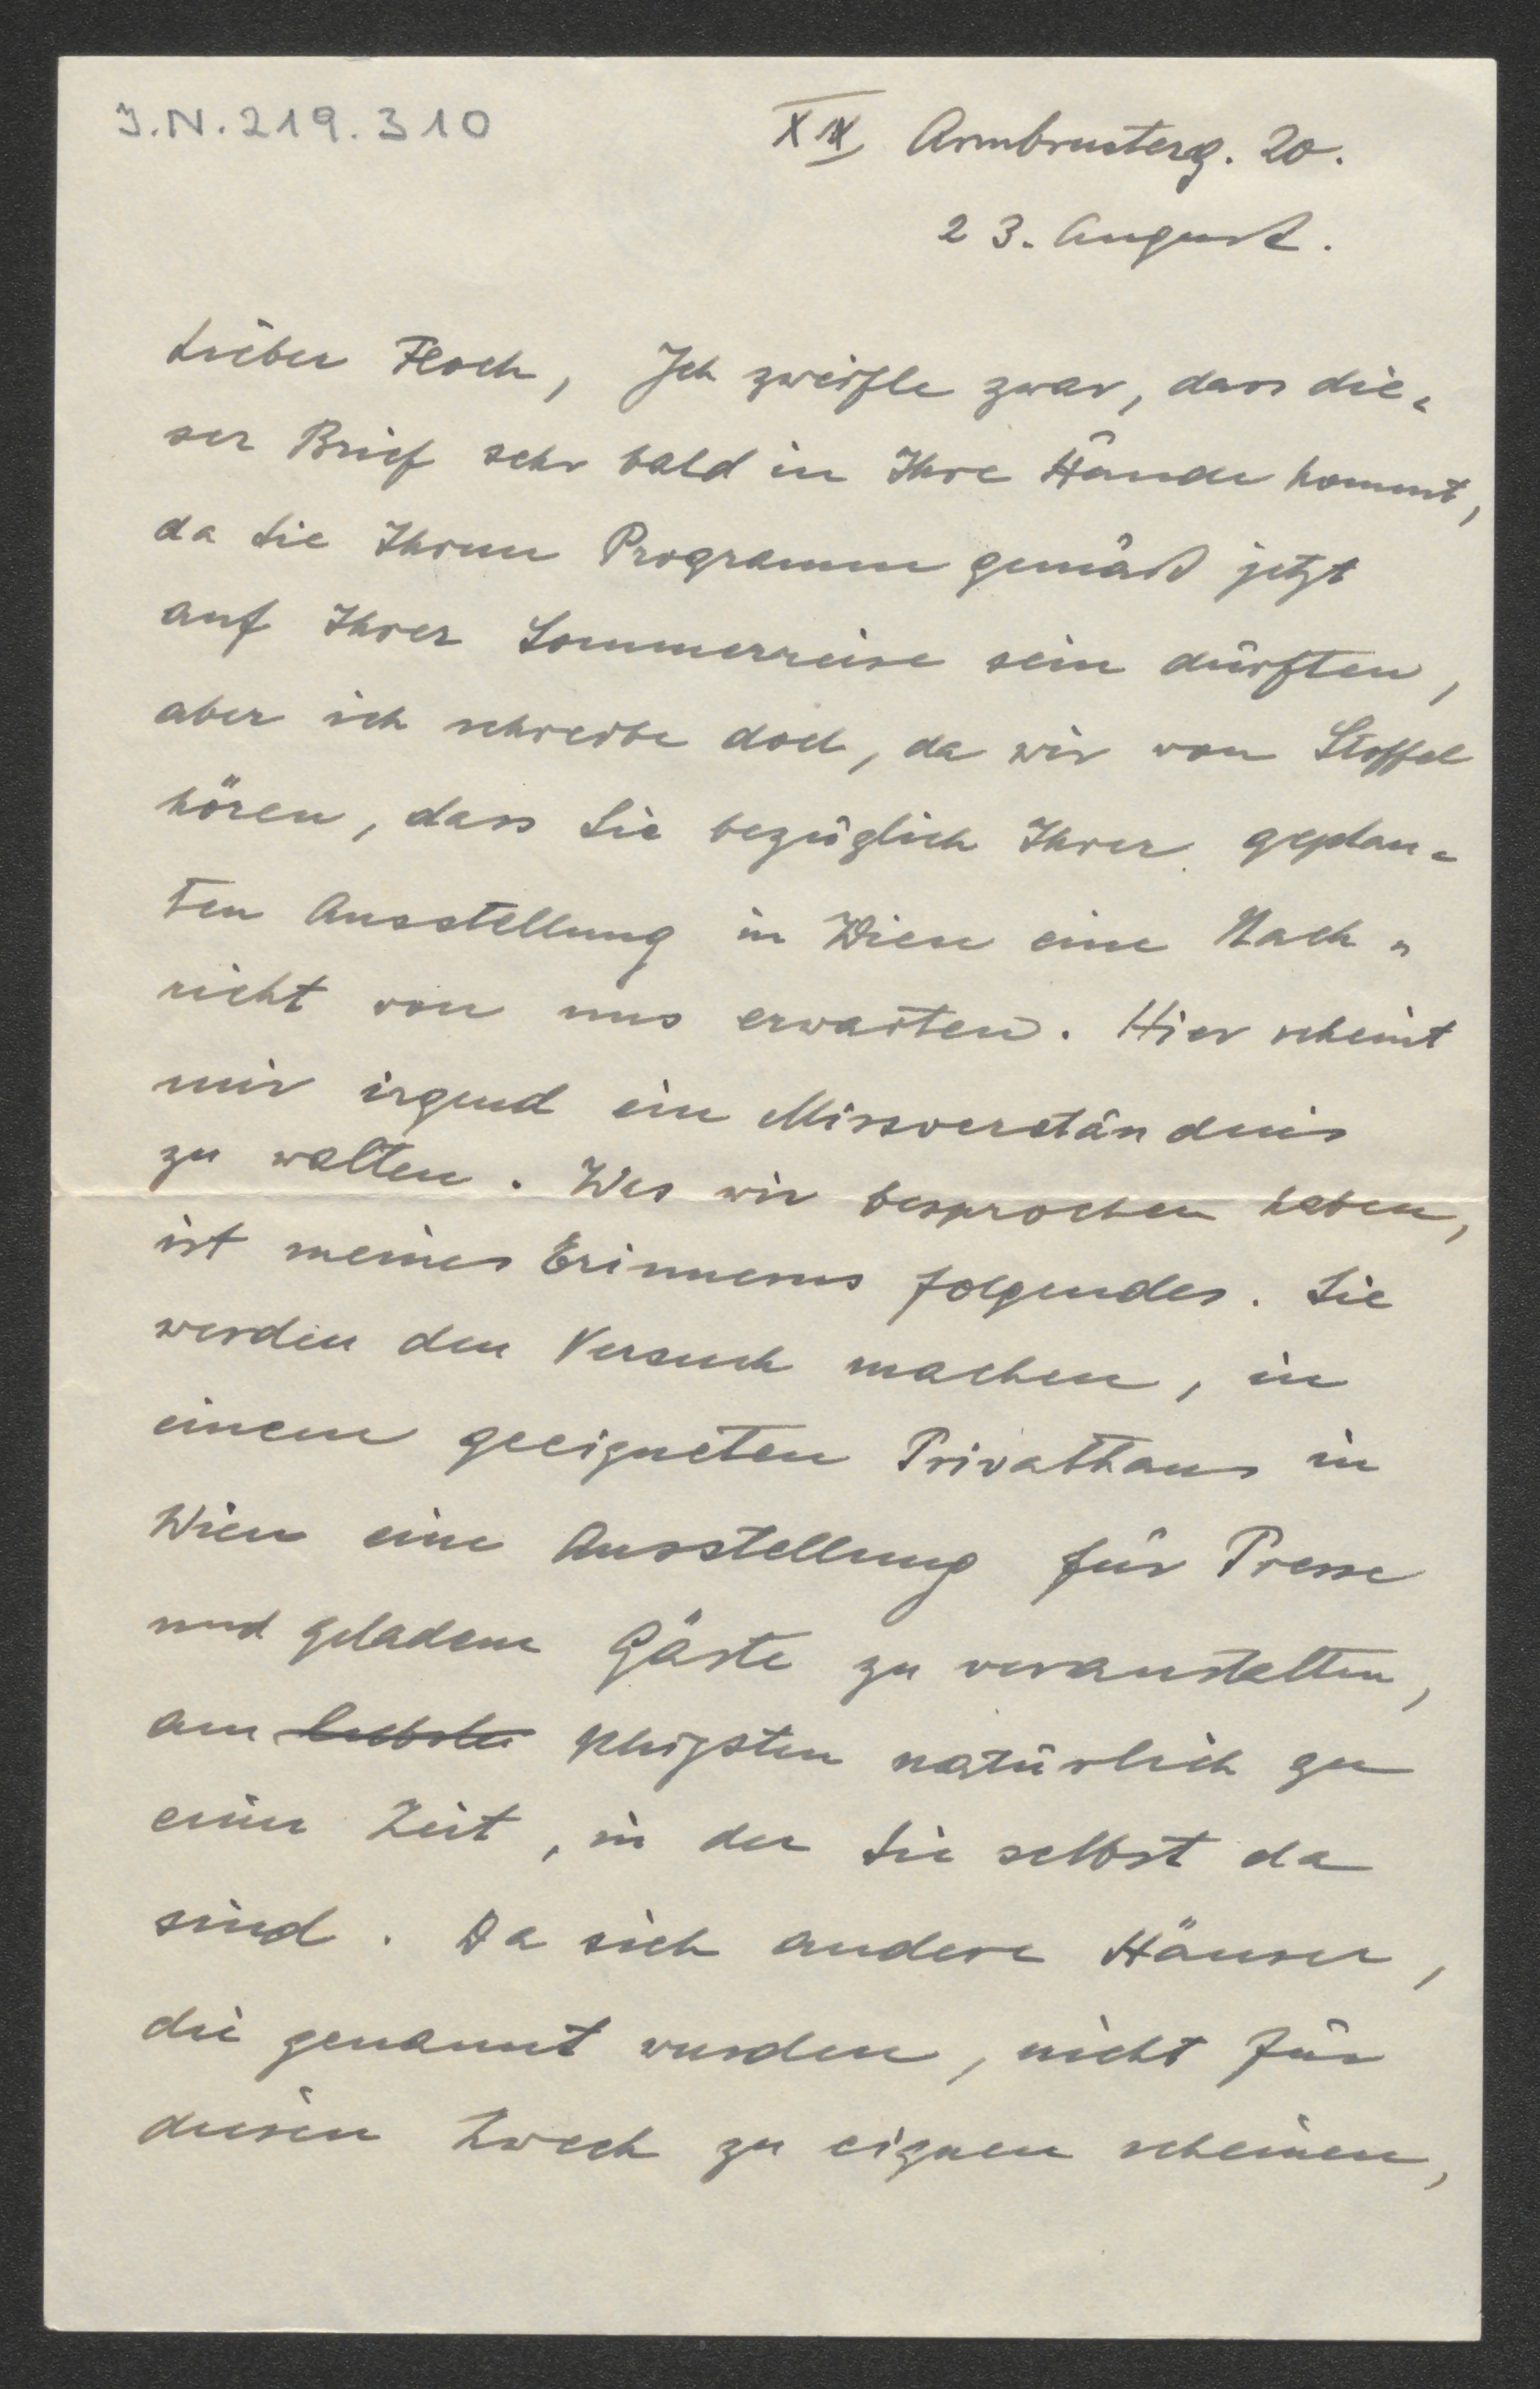 J.N. 219.310
XIX Armbrusterg. 20.
23. August.
Lieber Floch, Ich zweifle zwar, dass die=
ser Brief sehr bald in Ihre Hände kommt,
da Sie Ihrem Programm gemäß jetzt
auf Ihrer Sommerreise sein dürften,
aber ich schreibe doch, da wir von Stoffel
hören, dass Sie bezüglich Ihrer geplan=
ten Ausstellung in Wien eine Nach=
richt von uns erwarten. Hier scheint
mir irgend ein Missverständnis
zu walten. Was wir besprochen haben,
ist meines Erinnerns folgendes. Sie
werden den Versuch machen, in
einem geeigneten Privathaus in
Wien eine Ausstellung für Presse
und geladene Gäste zu veranstalten,
am liebsten klügsten natürlich zu
einer Zeit, in der Sie selbst da
sind. Da sich andere Häuser,
die genannt wurden, nicht für
diesen Zweck zu eignen scheinen,